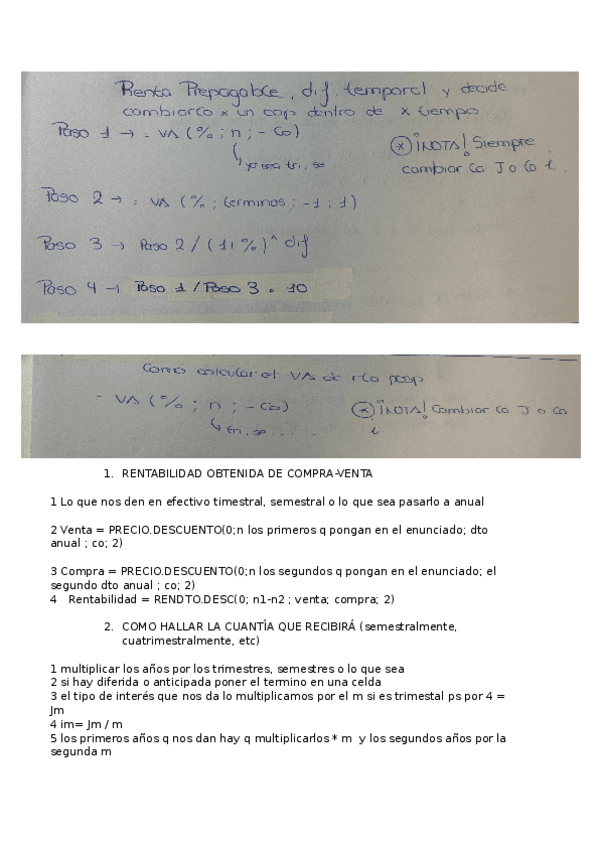 Renta Prepagable, dif. temporal y decide
cambiarlo x un cap dentro de x tiempo.
Paso 1 → = VA (% ; n ; - Co)
⊛ ¡NOTA! Siempre
cambiar la J o la i.
Paso 2 → = VA (% ; terminos ; -1 ; 1)
Paso 3 → Paso 2 / (1+%)^ dif
Paso 4 → Paso 1 / Paso 3 = 10
Como calcular el VA de rta posp
= VA (% ; n ; - Co)
⊛ ¡NOTA! Cambiar la J o la
i
1. RENTABILIDAD OBTENIDA DE COMPRA-VENTA
1 Lo que nos den en efectivo timestral, semestral o lo que sea pasarlo a anual
2 Venta = PRECIO.DESCUENTO(0;n los primeros q pongan en el enunciado; dto
anual ; co; 2)
3 Compra = PRECIO.DESCUENTO(0;n los segundos q pongan en el enunciado; el
segundo dto anual ; co; 2)
4 Rentabilidad = RENDTO.DESC(0; n1-n2 ; venta; compra; 2)
2. COMO HALLAR LA CUANTÍA QUE RECIBIRÁ (semestralmente,
cuatrimestralmente, etc)
1 multiplicar los años por los trimestres, semestres o lo que sea
2 si hay diferida o anticipada poner el termino en una celda
3 el tipo de interés que nos da lo multiplicamos por el m si es trimestal ps por 4 =
Jm
4 im= Jm / m
5 los primeros años q nos dan hay q multiplicarlos * m y los segundos años por la
segunda m